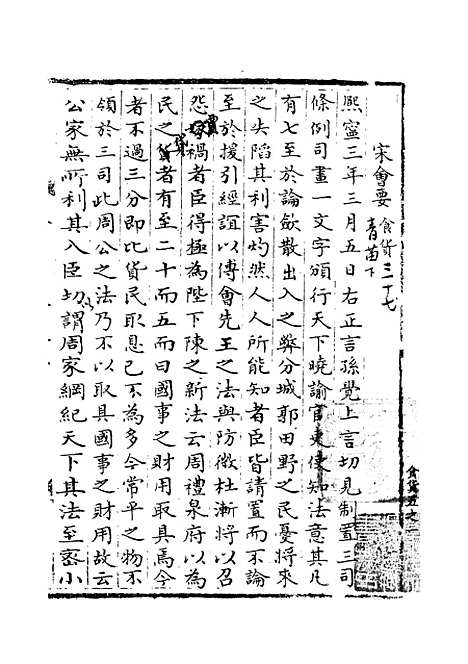 宋會要 食貨三十七
青苗下
熙寧三年三月五日右正言孫覺上言切見制置三司
條例司畫一文字頒行天下曉諭官吏使知法意其凡
有七至於論斂散出入之弊分城郭田野之民憂將來
之失陷其利害灼然人人所能知者臣皆請置而不論
至於援引經誼以傅會先王之法與防微杜漸將以召
怨賈禍者臣得極為陛下陳之新法云周禮泉府以為
民之貸者有至二十而五而曰國事之財用取具焉今
者不過三分即比貸民取息已不為多今常平之物不
領於三司此周公之法乃不以取具國事之財用故云
公家無所利其入臣切以謂周家綱紀天下其法至密小
食貨五之